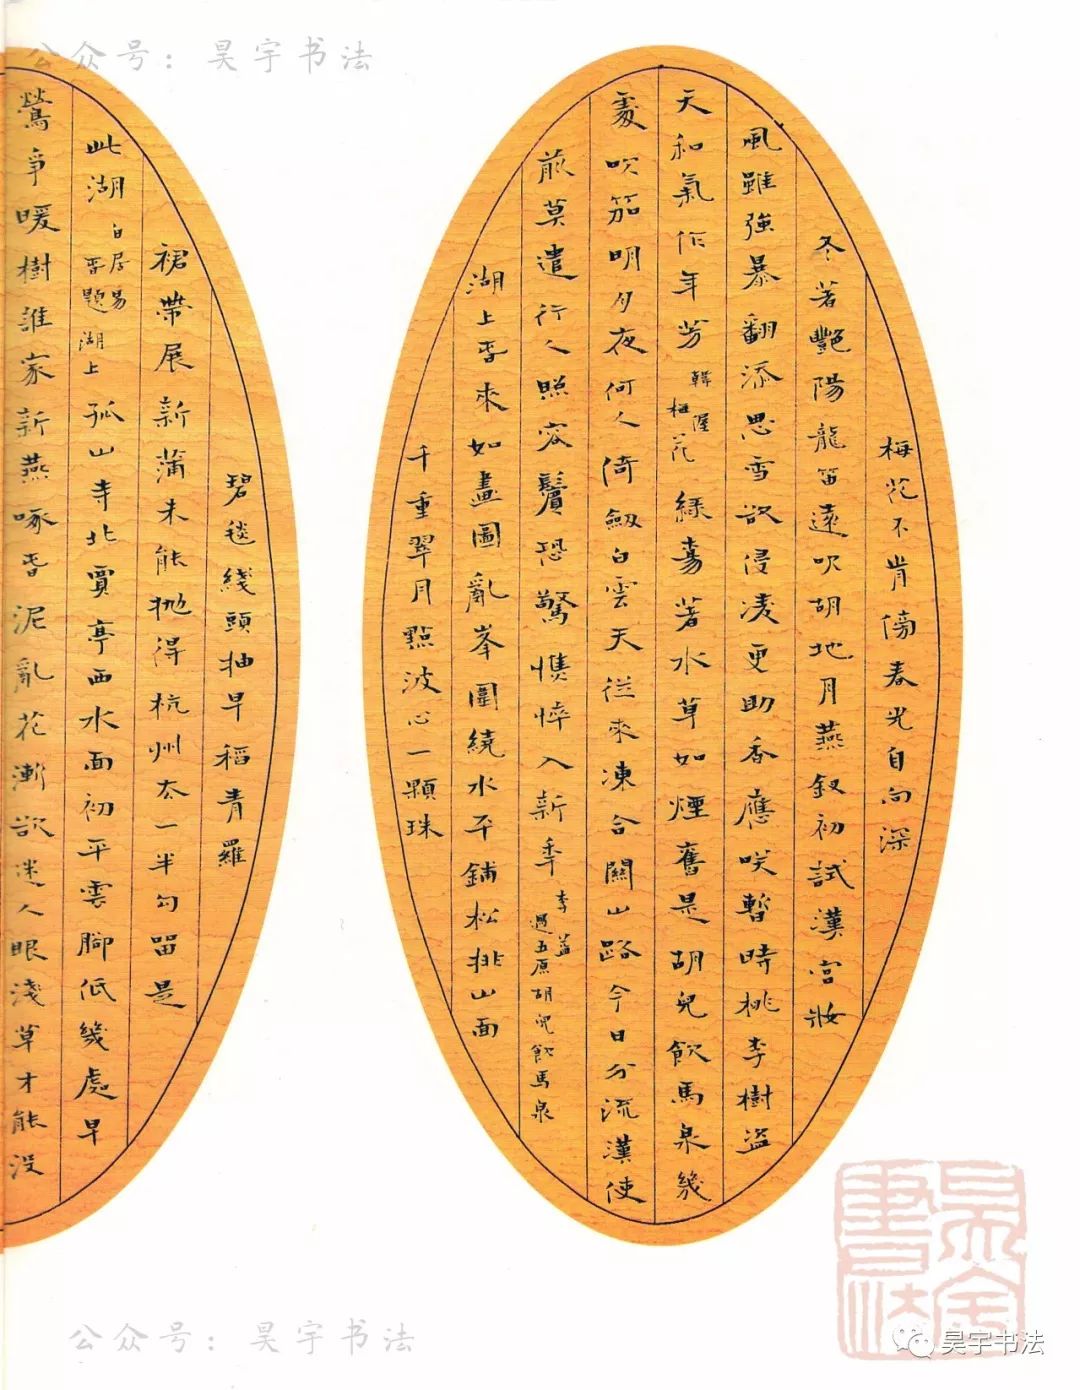 公众号：昊宇书法
梅花不肯傍春光自向深
冬著艷陽龍笛遠吹胡地月燕釵初試漢宮妝
風雖強暴翻添思雪欲侵凌更助香應咲暫時桃李樹盜
天和氣作年芳韓偓梅花綠楊著水草如煙舊是胡兒飲馬泉幾
處吹笳明月夜何人倚劔白雲天從來凍合關山路今日分流漢使
前莫遣行人照容鬢恐驚憔悴入新年李益過五原胡兒飲馬泉
湖上春來如畫圖亂峯圍繞水平鋪松排山面
千重翠月點波心一顆珠
碧毯綫頭抽早稻青羅
裙帶展新蒲未能抛得杭州去一半勾留是
此湖白居易春題湖上孤山寺北賈亭西水面初平雲腳低幾處早
鶯爭暖樹誰家新燕啄春泥亂花漸欲迷人眼淺草才能沒
昊宇書法
公众号：昊宇书法
昊宇书法